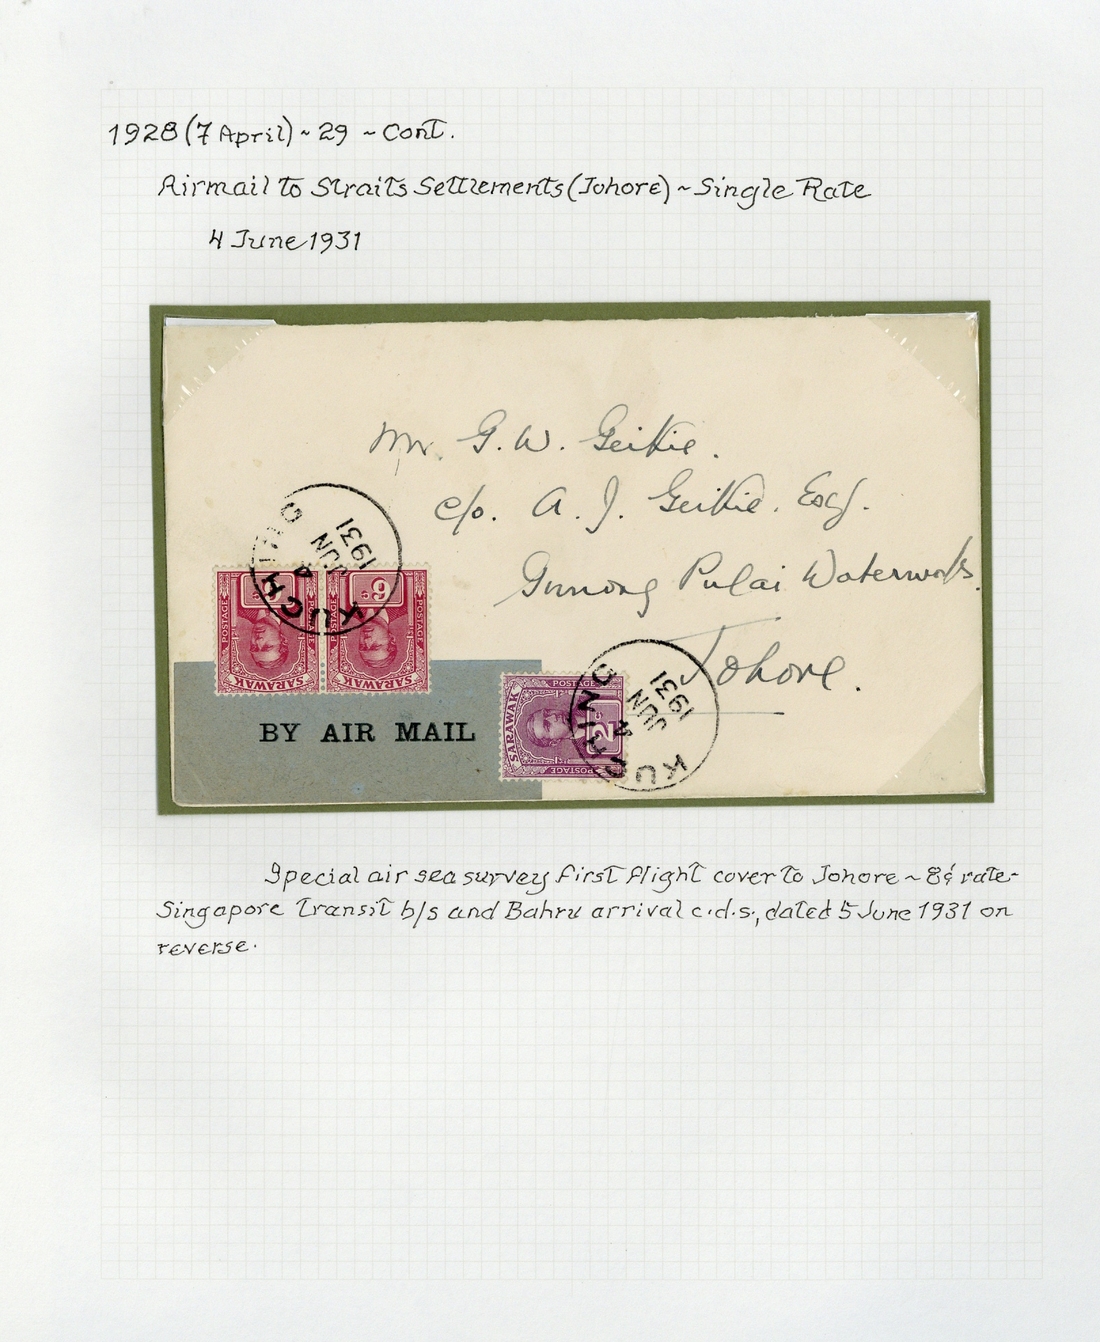 1928 (7 April) ~ 29 ~ Cont.
Airmail to Straits Settlements (Johore) ~ Single Rate
4 June 1931
Mr. G. W. Geikie.
c/o. A. J. Geikie. Esq.
Gunong Pulai Waterworks.
Johore.
KUCHING
4
JUN
1931
POSTAGE
POSTAGE
SARAWAK
POSTAGE
POSTAGE
SARAWAK
BY AIR MAIL
POSTAGE
SARAWAK
2
POSTAGE
KUCHING
4
JUN
1931
Special air sea survey first flight cover to Johore ~ 8¢ rate -
Singapore transit b/s and Bahru arrival c.d.s., dated 5 June 1931 on
reverse.